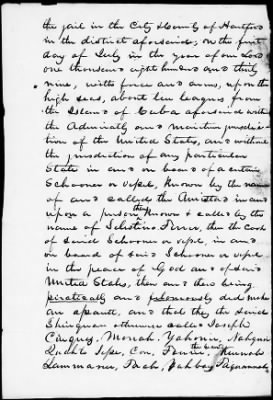 the jail in the City & County of Hartford
in the district aforesaid, on the first
day of July in the year of our Lord
one thousand eight hundred and thirty
nine, with force and arms, upon the
high seas, about ten leagues from
the Island of Cuba aforesaid within
the Admiralty and maritime jurisdic-
tion of the United States, and without
the jurisdiction of any particular
State in and on board of a certain
Schooner or vessel, known by the name
of and called the Amistad in and
upon a person then known & called by the
name of Selestino Ferrer, then the cook
of said Schooner or vessel, in and
on board of said Schooner or vessel
in the peace of God and of said
United States, then and there being
piratically and feloniously did make
an assault, and that they the said
Shinquau otherwise called Joseph
Cinquez, Monah, Yahome, Nahqui
Quato Sesse, Con, Fawni the 
Lammane, Fah, Yahboy